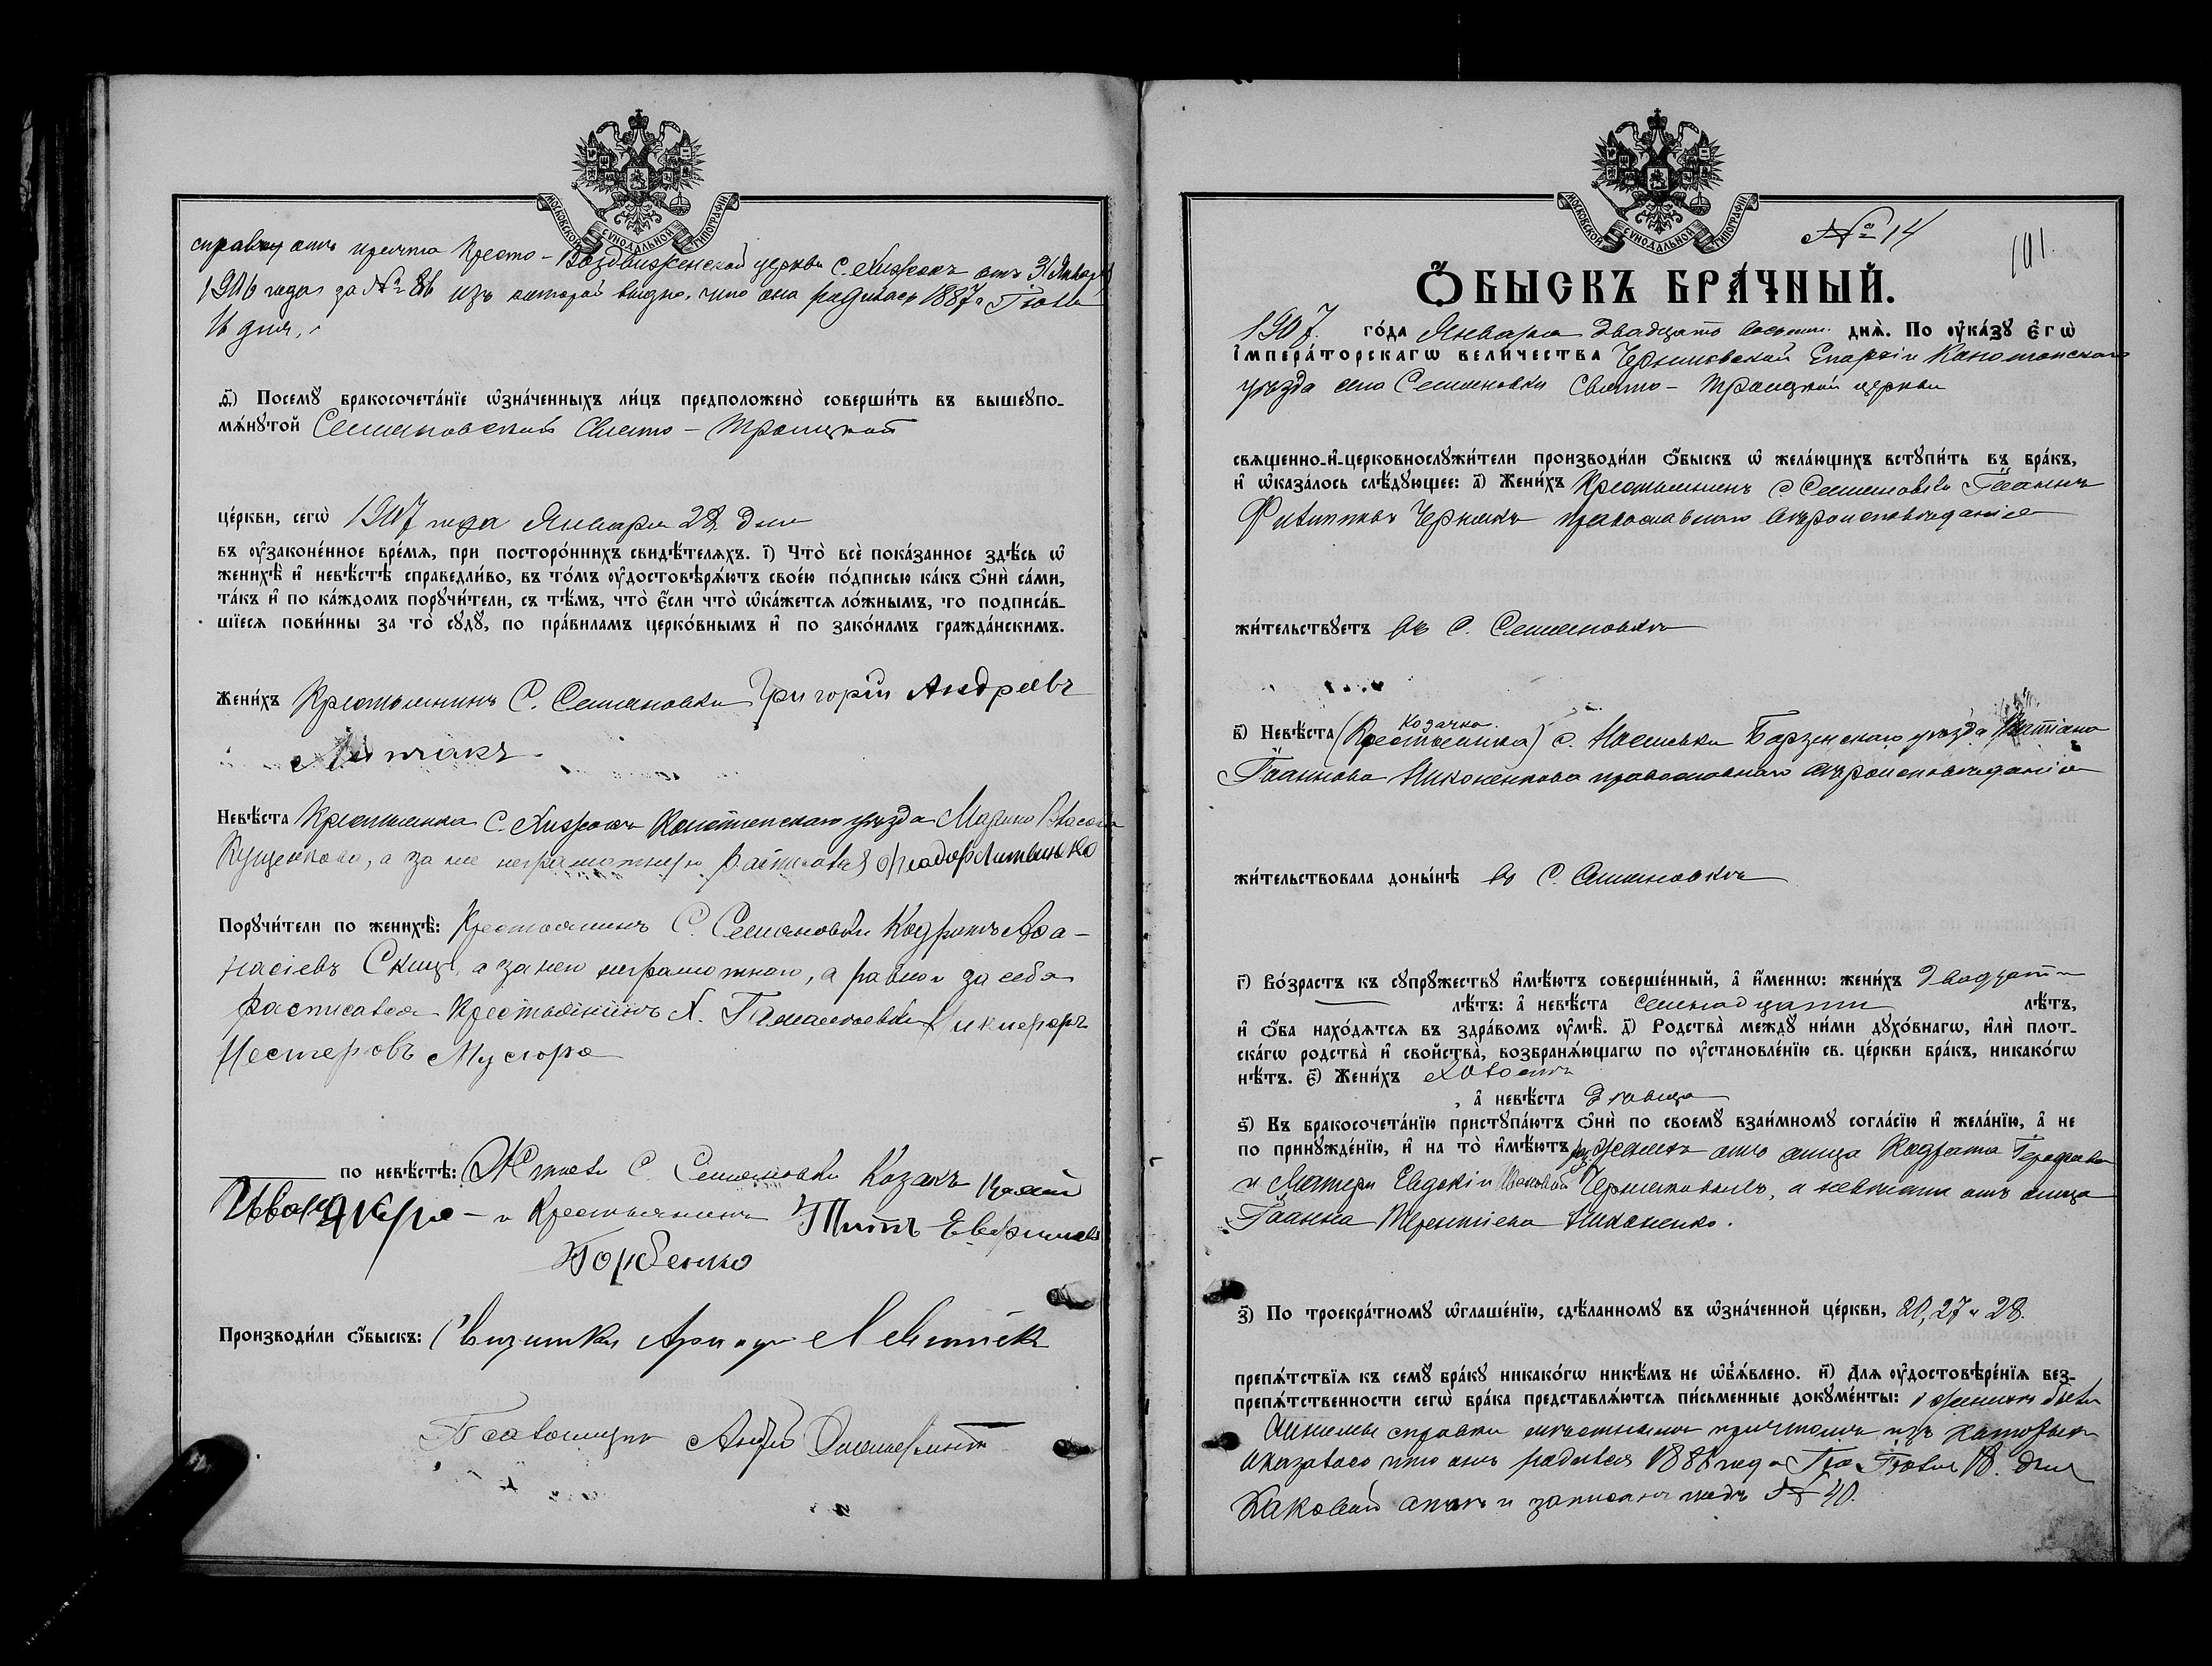 МОСКОВСКОЙ СѴНОДАЛЬНОЙ ТИПОГРАФІИ
справку отъ причта Кресто-Воздвиженской церкви с. Хижокъ отъ 31 Января
1906 года за № 86 изъ которой видно, что она родилась 1887 г. Іюля
16 дня.
д҃.) Посемꙋ̀ бракосочета́нїе ѡ҆зна́ченныхъ ли́цъ предположено̀ соверши́ть въ вышеꙋпо-
мѧ́нꙋтой Семяновской Свято-Троицкой
це́ркви, сегѡ̀ 1907 года Января 28 дня
въ ᲂу҆законе́нное вре́мѧ, при посторо́ннихъ свидѣ́телѧхъ. і҃) Что̀ всѐ пока́занное здѣ́сь ѡ҆
женихѣ̀ и҆ невѣ́стѣ справедли́во, въ то́мъ ᲂу҆достовѣрѧ́ютъ свое́ю по́дписью ка́къ ѻ҆нѝ са́ми,
та́къ и҆ по ка́ждомъ порꙋчи́тели, съ тѣ́мъ, что̀ є҆́сли что̀ ѡ҆ка́жетсѧ ло́жнымъ, то подписа́в-
шїесѧ пови́нны за то̀ сꙋдꙋ̀, по пра́виламъ церко́внымъ и҆ по зако́намъ гражда́нскимъ.
Жени́хъ Крестьянинъ С. Семяновки Григорій Андреевъ
Литвакъ
Невѣ́ста Крестьянка С. Хижокъ Конотопскаго уѣзда Марина Власова
Куценкова, а за нее неграмотную росписался Феодоръ Литвинко
Порꙋчи́тели по женихѣ̀: Крестьянинъ С. Семяновки Кодратъ Афа-
насіевъ Скиц, а за него неграмотнаго, а равно и за себя
расписался Крестьянинъ Х. Никифоръ
Нестеровъ Мусюра
по невѣ́стѣ: Жители С. Семяновки Козакъ
Иванъ и Крестьянинъ Титъ Евфимовъ
Горбенко
Производи́ли ѻ҆́быскъ: Левитскій
Псаломщикъ Андрей
МОСКОВСКОЙ СѴНОДАЛЬНОЙ ТИПОГРАФІИ
№ 14
101.
Ѻ҆́БЫСКЪ БРА́ЧНЫЙ.
1907. го́да Января двадцать восьмого днѧ̀. По ᲂу҆ка́зꙋ Є҆гѡ̀
І҆мпера́торскагѡ вели́чества Черниговской Епархіи Конотопскаго
уѣзда села Семяновки Свято-Троицкой церкви
свѧщенно-и҆-церковнослꙋжи́тели производи́ли ѻ҆́быскъ ѡ҆ жела́ющихъ встꙋпи́ть въ бра́къ,
и҆ ѡ҆каза́лось слѣ́дꙋющее: а҃) Жени́хъ Крестьянинъ с. Семяновки Іоаннъ
Филипповъ Чернякъ православнаго вѣроисповѣданія
жи́тельствꙋетъ въ С. Семяновкѣ
Козачка
в҃) Невѣ́ста (Крестьянка) с. Борзенскаго уѣзда Татіана
Іоаннова Никоненкова православнаго вѣроисповѣданія
жи́тельствовала доны́нѣ въ С. Семяновкѣ
г҃) Во́зрастъ къ сꙋпрꙋ́жествꙋ и҆мѣ́ютъ соверше́нный, а҆ и҆́менно: жени́хъ двадцати
лѣ́тъ: а҆ невѣ́ста семнадцати лѣ́тъ,
и҆ ѻ҆́ба нахо́дѧтсѧ въ здра́вомъ ᲂу҆мѣ̀. д҃) Родства̀ междꙋ̀ ни́ми дꙋхо́внагѡ, и҆лѝ плот-
ска́гѡ родства̀ и҆ сво́йства̀, возбранѧ́ющагѡ по ᲂу҆становле́нїю св. це́ркви бра́къ, никако́гѡ
нѣ́тъ. є҃) Жени́хъ холостъ
, а҆ невѣ́ста дѣвица
ѕ҃) Въ бракосочета́нїю пристꙋпа́ютъ ѻ҆нѝ по своемꙋ̀ взаи́мномꙋ согла́сїю и҆ жела́нїю, а҆ не
по принꙋжде́нїю, и҆ на то̀ и҆мѣ́ютъ женихъ отъ отца Кодрата
и Матери Евдокіи Черняковыхъ, а невѣста отъ отца
Іоанна Терентіева Никоненко.
з҃) По троекра́тномꙋ ѡ҆глаше́нїю, сдѣ́ланномꙋ въ ѡ҆зна́ченной це́ркви, 20, 27 и 28.
препѧ́тствїѧ къ семꙋ̀ бра́кꙋ никако́гѡ никѣ́мъ не ѡ҆б̾ѧ́влено. и҃) Длѧ ᲂу҆достовѣре́нїѧ без-
препѧ́тственности сегѡ̀ бра́ка представлѧ́ютсѧ пи́сьменные докꙋме́нты: о женихѣ были
справки мѣстнымъ причтомъ изъ которыхъ
оказалось что онъ родился 188 года Іюля 18. дня
каковой актъ и записанъ подъ № 40.